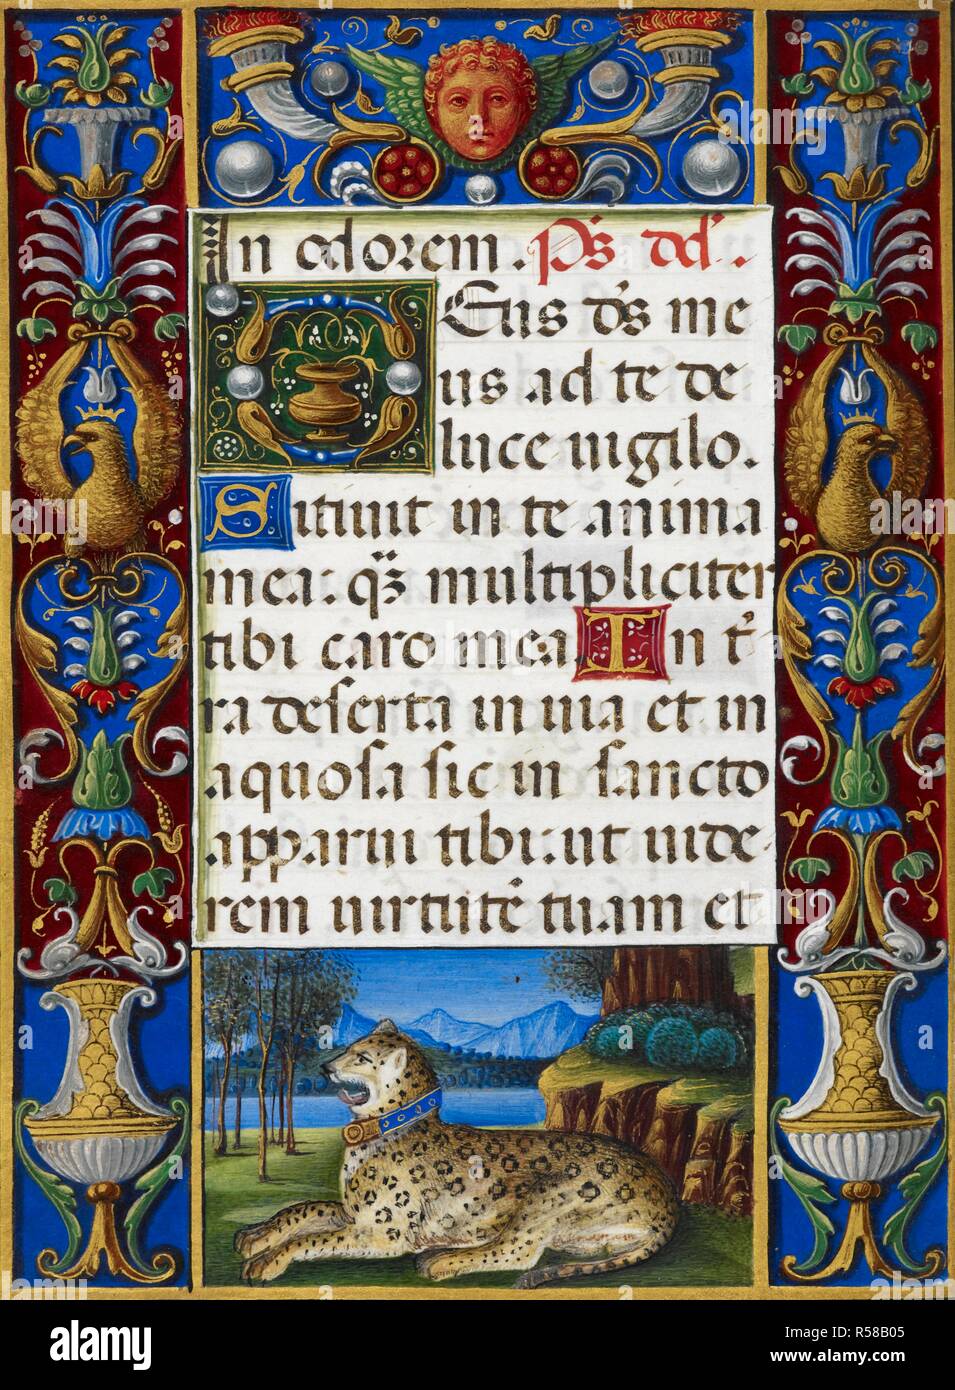 In odorem. Ps̄ dd̄.
DEus d̄s me
us ad te de
luce uigilo.
Sitiuit in te anima
mea: q̄ȝ multipliciter
tibi caro mea In t̄
ra deserta in uia et in
aquosa sic in sancto
apparui tibi: ut uide
rem uirtutē tuam et
a
alamy
alamy
Image ID: R58B05
www.alamy.com